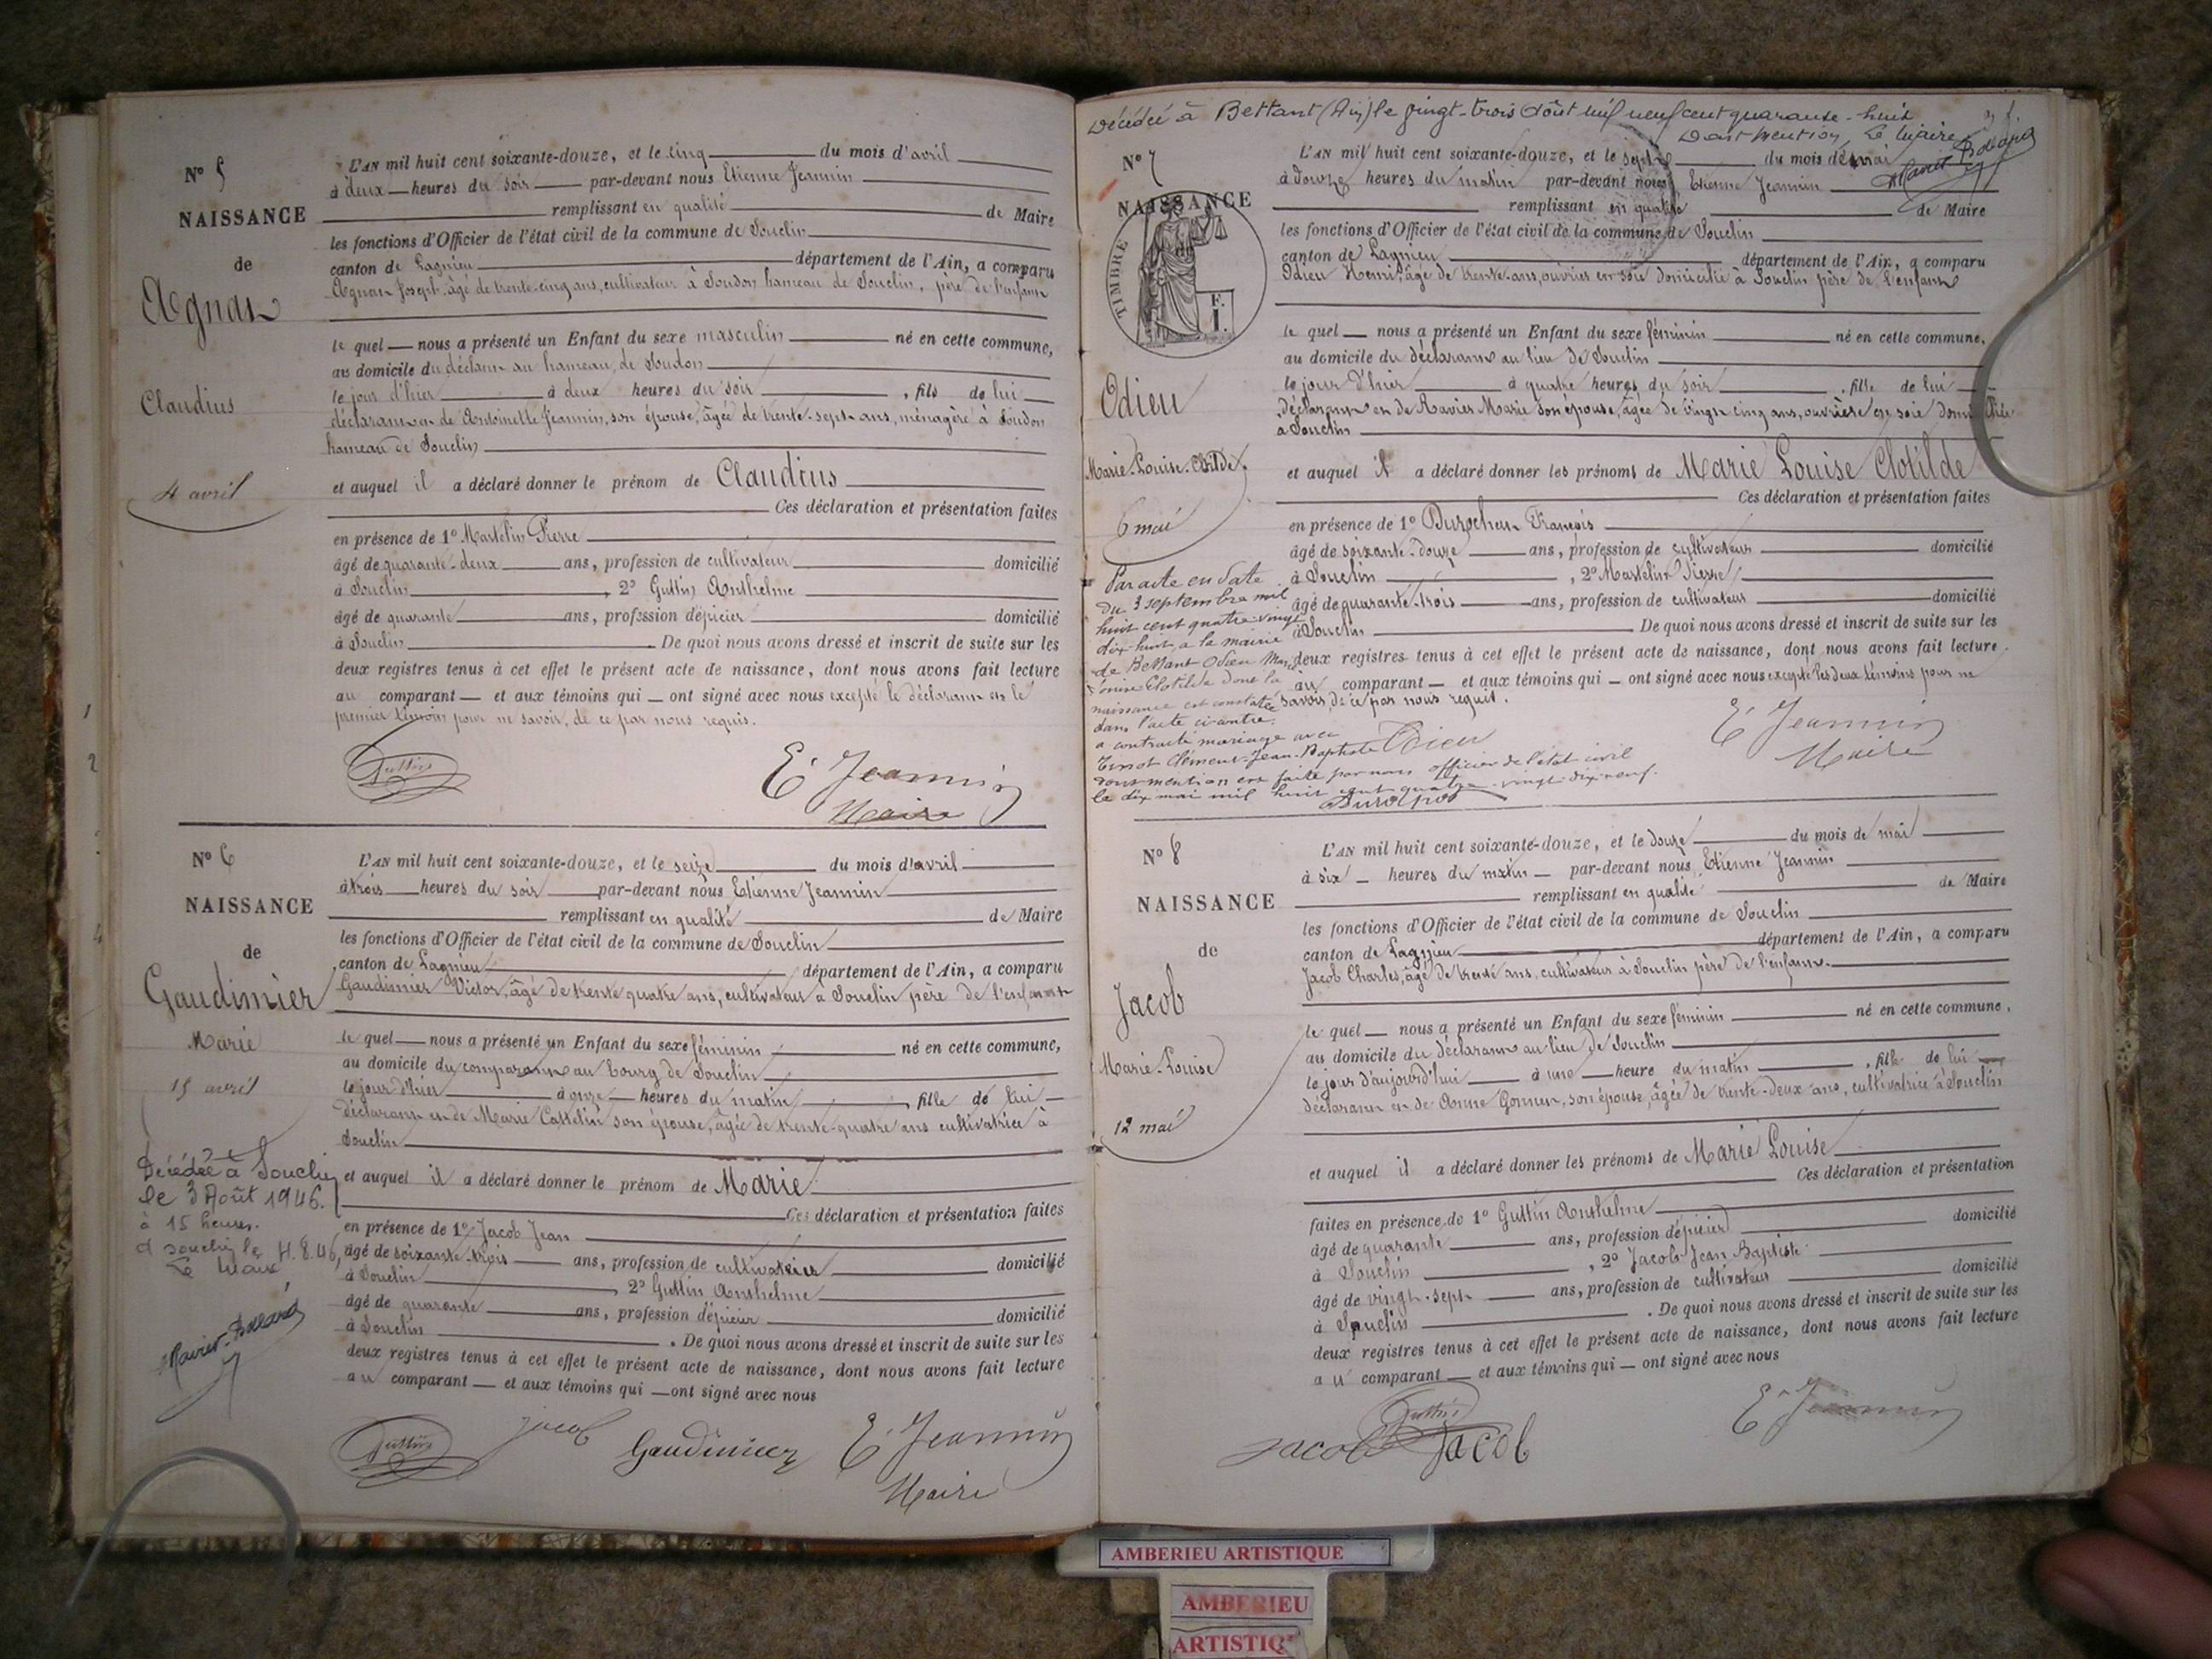 N° 5
NAISSANCE
de
Agnan
Claudius
4 avril
L'AN mil huit cent soixante-douze, et le cinq du mois d'avril
à deux heures du soir par-devant nous Etienne Jeannin
remplissant en qualité de Maire
les fonctions d'Officier de l'état civil de la commune de Souclin
canton de Lagnieu département de l'Ain, a comparu
Agnan Joseph, âgé de trente-cinq ans, cultivateur à Soudon hameau de Souclin, père de l'enfant
le quel nous a présenté un Enfant du sexe masculin né en cette commune,
au domicile du déclarant au hameau de Soudon
le jour d'hier à deux heures du soir, fils de lui
déclarant et de Antoinette Jeannin, son épouse, âgée de trente-sept ans, ménagère à Soudon
hameau de Souclin
et auquel il a déclaré donner le prénom de Claudius
Ces déclaration et présentation faites
en présence de 1° Martelin Pierre
âgé de quarante-deux ans, profession de cultivateur domicilié
à Souclin, 2° Guttin Anthelme
âgé de quarante ans, profession d'épicier domicilié
à Souclin. De quoi nous avons dressé et inscrit de suite sur les
deux registres tenus à cet effet le présent acte de naissance, dont nous avons fait lecture
au comparant et aux témoins qui ont signé avec nous excepté le déclarant et le
premier témoin pour ne savoir, de ce par nous requis.
Guttin
E. Jeannin
Maire
N° 6
NAISSANCE
de
Gaudimier
Marie
15 avril
Décédée à Souclin
le 3 Août 1946.
à 15 heures.
A Souclin le 4.8.46,
Le Maire
Ravier-Bollard
L'AN mil huit cent soixante-douze, et le seize du mois d'avril
à trois heures du soir par-devant nous Etienne Jeannin
remplissant en qualité de Maire
les fonctions d'Officier de l'état civil de la commune de Souclin
canton de Lagnieu département de l'Ain, a comparu
Gaudimier Victor, âgé de trente quatre ans, cultivateur à Souclin père de l'enfant
le quel nous a présenté un Enfant du sexe féminin né en cette commune,
au domicile du comparant au bourg de Souclin
le jour d'hier à onze heures du matin, fille de lui
déclarant et de Marie Castelin son épouse, âgée de trente-quatre ans cultivatrice à
Souclin
et auquel il a déclaré donner le prénom de Marie
Ces déclaration et présentation faites
en présence de 1° Jacob Jean
âgé de soixante-trois ans, profession de cultivateur domicilié
à Souclin, 2° Guttin Anthelme
âgé de quarante ans, profession d'épicier domicilié
à Souclin. De quoi nous avons dressé et inscrit de suite sur les
deux registres tenus à cet effet le présent acte de naissance, dont nous avons fait lecture
au comparant et aux témoins qui ont signé avec nous
Guttin
Jacob
Gaudimier
E. Jeannin
Maire
Décédée à Bettant (Ain) le vingt-trois Août mil neuf cent quarante-huit
Dont mention, Le Maire
N° 7
NAISSANCE
TIMBRE
F.
I.
Odieu
Marie-Louise-Clotilde
6 mai
Par acte en date
du 3 septembre mil
huit cent quatre-vingt
dix-huit, à la mairie
de Bettant Odieu Marie
Louise Clotilde dont la
naissance est constatée
dans l'acte ci-contre.
a contracté mariage avec
Tenot Clément-Jean-Baptiste
dont mention est faite par nous officier de l'état civil
le dix mai mil huit cent quatre-vingt-dix-neuf.
L'AN mil huit cent soixante-douze, et le sept du mois de mai
à douze heures du matin par-devant nous Etienne Jeannin
remplissant en qualité de Maire
les fonctions d'Officier de l'état civil de la commune de Souclin
canton de Lagnieu département de l'Ain, a comparu
Odieu Henri, âgé de trente-ans, ouvrier en soie domicilié à Souclin père de l'enfant
le quel nous a présenté un Enfant du sexe féminin né en cette commune,
au domicile du déclarant au lieu de Souclin
le jour d'hier à quatre heures du soir, fille de lui
déclarant et de Ravier Marie son épouse, âgée de vingt cinq ans, ouvrière en soie domiciliée
à Souclin
et auquel il a déclaré donner les prénoms de Marie Louise Clotilde
Ces déclaration et présentation faites
en présence de 1° Durochat François
âgé de soixante-douze ans, profession de cultivateur domicilié
à Souclin, 2° Martelin Pierre
âgé de quarante-trois ans, profession de cultivateur domicilié
à Souclin. De quoi nous avons dressé et inscrit de suite sur les
deux registres tenus à cet effet le présent acte de naissance, dont nous avons fait lecture
au comparant et aux témoins qui ont signé avec nous excepté les deux témoins pour ne
savoir, de ce par nous requit.
Odieu
E. Jeannin
Maire
N° 8
NAISSANCE
de
Jacob
Marie-Louise
12 mai
L'AN mil huit cent soixante-douze, et le douze du mois de mai
à six heures du matin par-devant nous Etienne Jeannin
remplissant en qualité de Maire
les fonctions d'Officier de l'état civil de la commune de Souclin
canton de Lagnieu département de l'Ain, a comparu
Jacob Charles, âgé de trente ans, cultivateur à Souclin père de l'enfant.
le quel nous a présenté un Enfant du sexe féminin né en cette commune,
au domicile du déclarant au lieu de Souclin
le jour d'aujourd'hui à une heure du matin, fille de lui
déclarant et de Anne Gonnet, son épouse, âgée de trente-deux ans, cultivatrice à Souclin
et auquel il a déclaré donner les prénoms de Marie Louise
Ces déclaration et présentation
faites en présence de 1° Guttin Anthelme
âgé de quarante ans, profession d'épicier domicilié
à Souclin, 2° Jacob Jean Baptiste
âgé de vingt-sept ans, profession de cultivateur domicilié
à Souclin. De quoi nous avons dressé et inscrit de suite sur les
deux registres tenus à cet effet le présent acte de naissance, dont nous avons fait lecture
au comparant et aux témoins qui ont signé avec nous
Guttin
Jacob Jacob
E. Jeannin
AMBERIEU ARTISTIQUE
AMBERIEU
ARTISTIQ